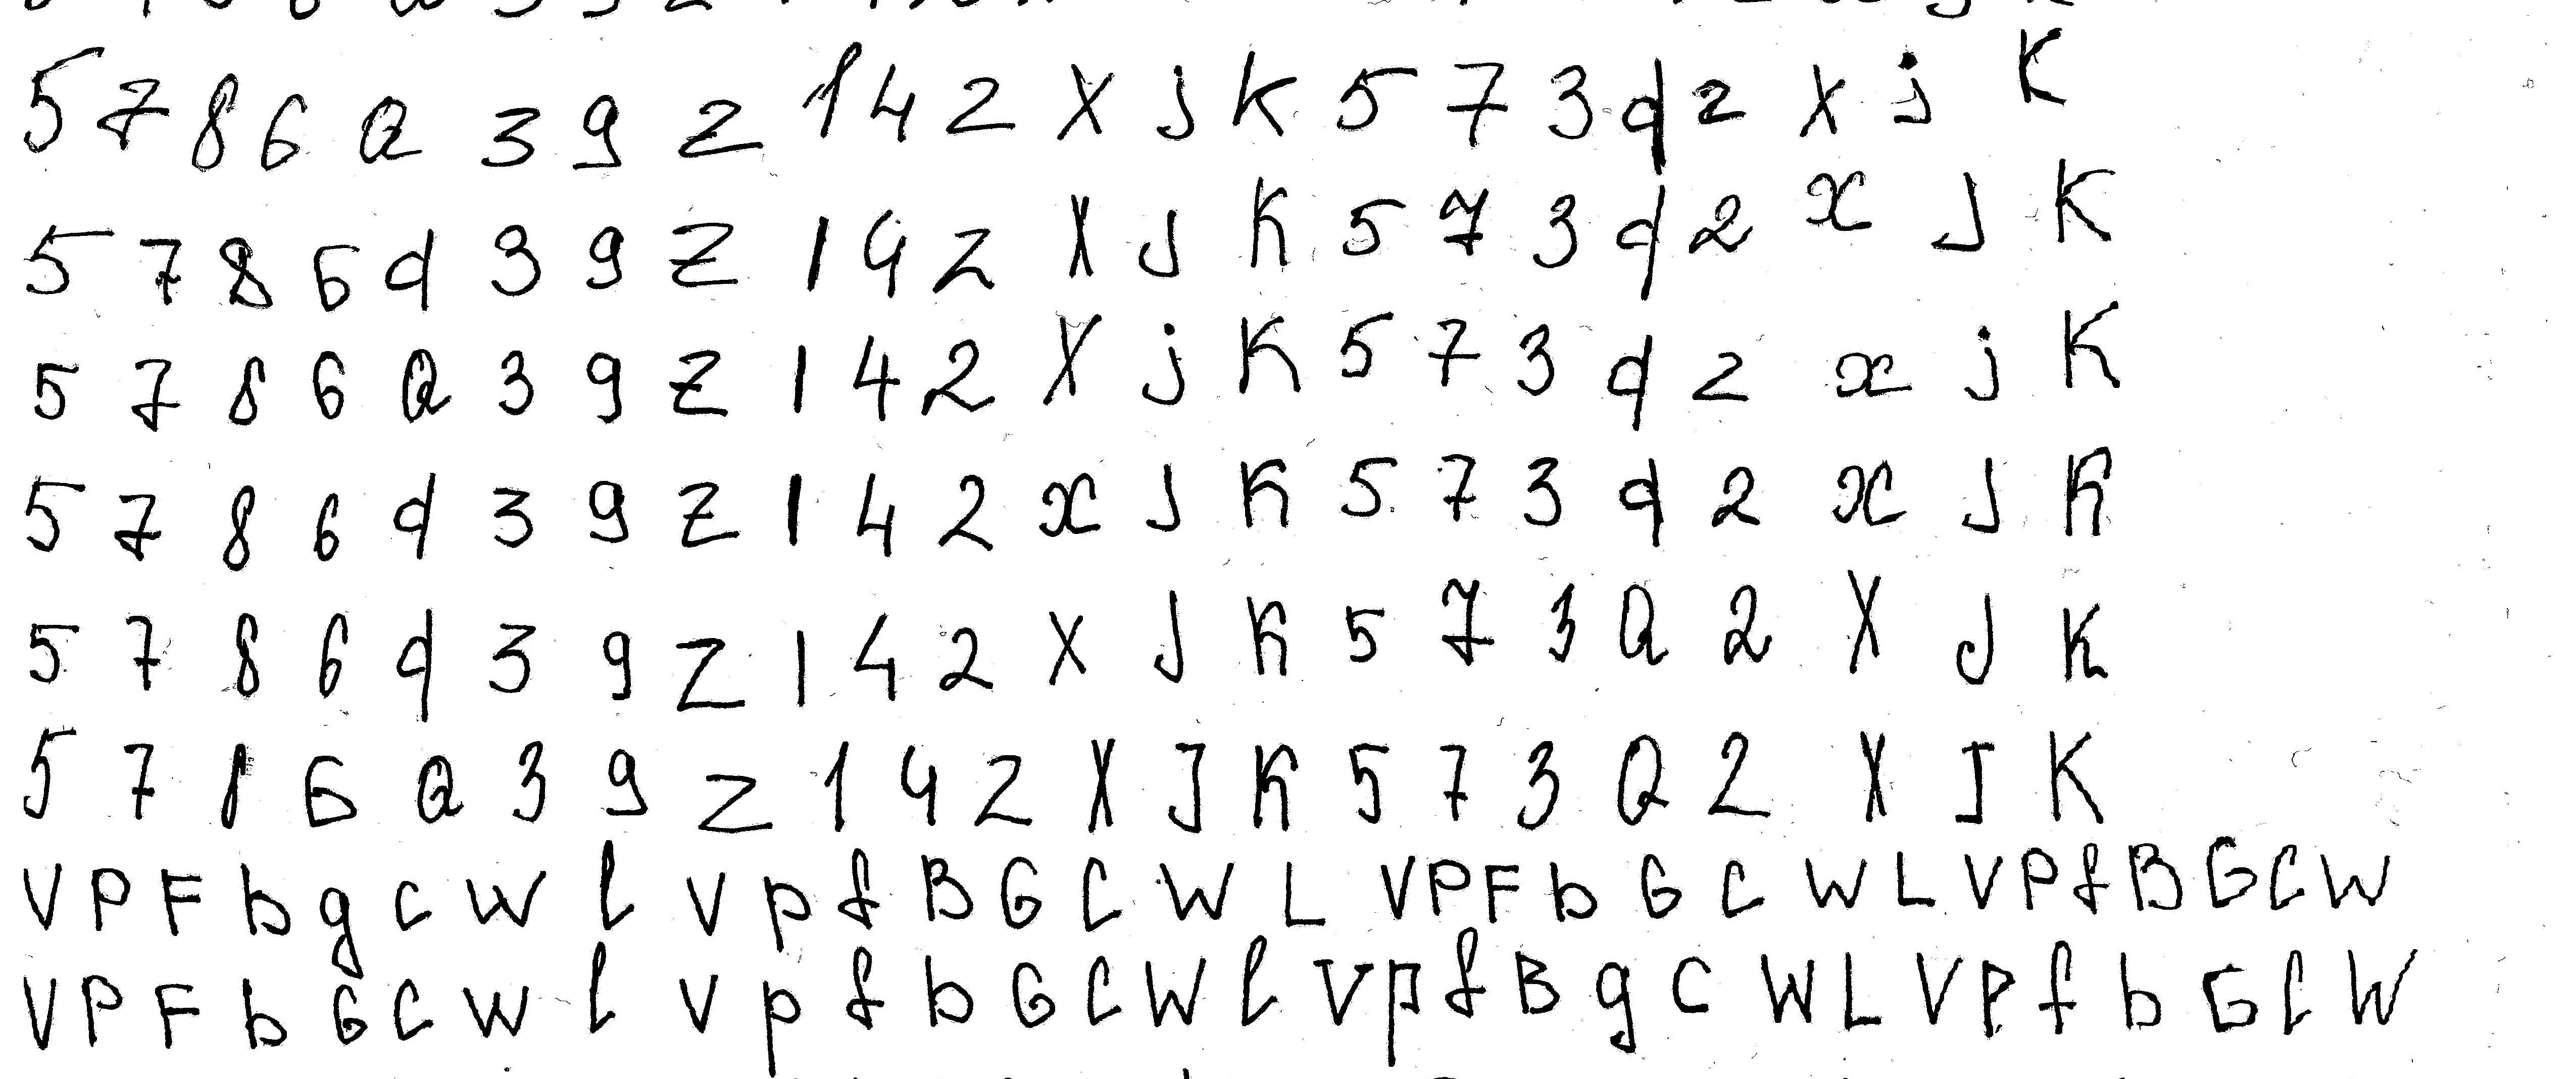 5 7 8 6 Q 3 9 Z 1 4 2 X j K 5 7 3 q 2 x j K
5 7 8 6 q 3 9 Z 1 4 2 X J K 5 7 3 q 2 x J K
5 7 8 6 Q 3 9 Z 1 4 2 X j K 5 7 3 q 2 x j K
5 7 8 6 q 3 9 Z 1 4 2 x J K 5 7 3 q 2 x J K
5 7 8 6 q 3 9 Z 1 4 2 X J K 5 7 3 Q 2 X J K
5 7 8 G Q 3 9 Z 1 4 2 X J K 5 7 3 Q 2 X J K
V P F b g c W l V p f B G C W L V P F b G C W L V P f B G C W
V P F b G C W l V p f b G C W l V p f B g C W L V P f b G C W